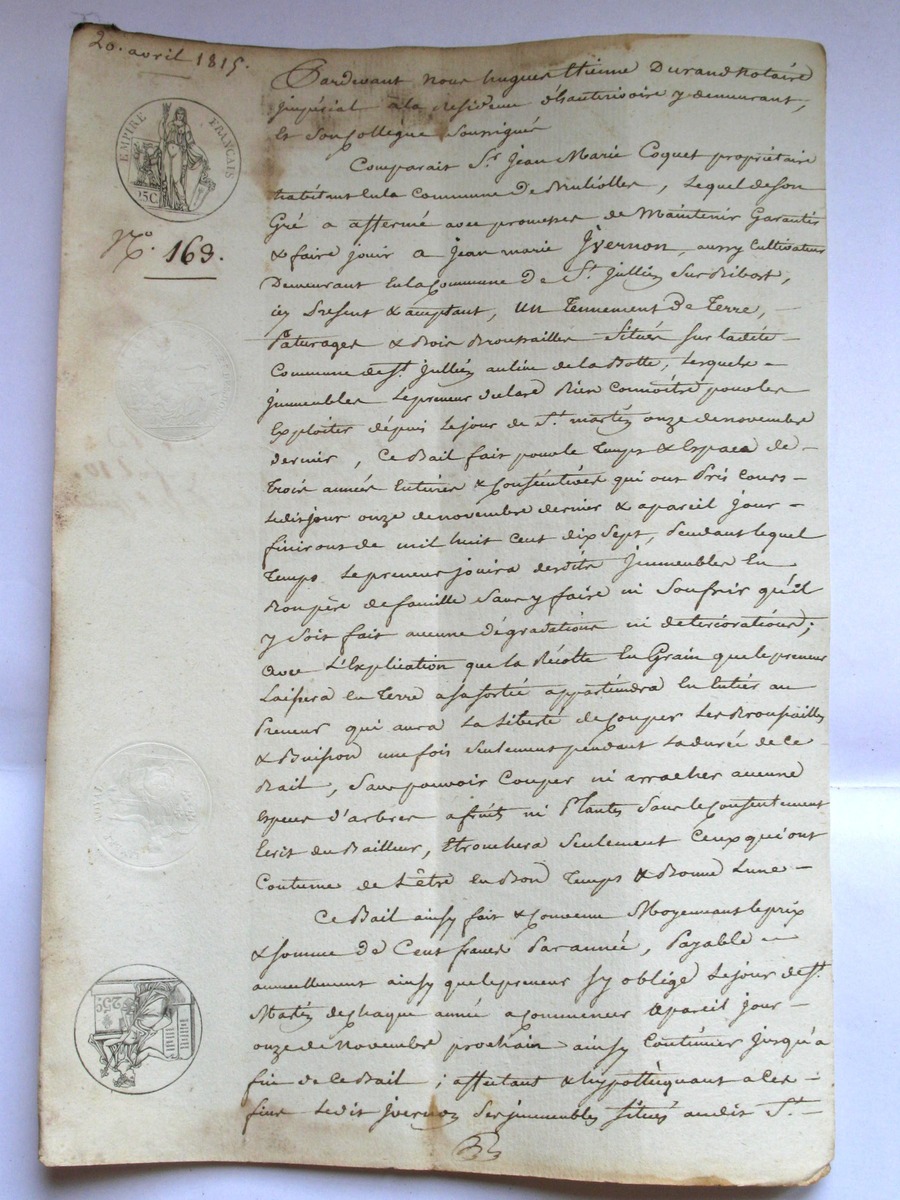 20. avril 1815.
EMPIRE FRANÇAIS
25C
N.º 169.
Pardevant nous hugues Etienne Durand Notaire
jmpérial a la residence d'hauterivoire y demeurant,
Et son Collegue soussignés
Comparait S.r Jean Marie Coquet propriétaire
habitant En la Commune de Bruliolles, Lequel de son
Gré a affermé avec promesses de Maintenir Garantir
& faire jouir a Jean marie Jvernon, aussy Cultivateur
Demeurant En la Commune De S.t Jullien Sur Bibost,
icy Present & acceptant, un Tennement De Terre,
Paturages & Bois Broussailles Situés sur la dite
Commune de S.t Jullien au lieu de la Botte, Lesquels
jmmeubles Le preneur declare Bien Connoître pour les
Exploiter dépuis Le jour de S.t martin onze de novembre
dernier, Ce Bail fait pour le Temps & Espace de
Trois années Entieres & Consécutives qui ont Pris Cours
Ledit jour onze de novembre dernier & a pareil jour
finiront de mil huit Cent dix Sept, Pendant lequel
Temps Le preneur jouira desdits Jmmeubles En
Bon père de famille Sans y faire ni Souffrir qu'il
y Soit fait aucune Dégradations ni deteriorations;
avec L'Explication que la Récolte En Grain que le preneur
Laissera En Terre a sa sortie appartiendra En Entier au
Preneur qui aura La Liberté de Couper Les Broussailles
& Buisson une fois Seulement pendant La durée de Ce
Bail, Sans pouvoir Couper ni arracher aucune
Espece d'arbres a fruits ni Plantes Sans le Consentement
Ecrit du Bailleur, Etronchera Seulement Ceux qui ont
Coutume de L'être En Bon Temps & Bonne Lune
Ce Bail ainsy fait & Convenu Moyennant le prix
& somme de Cent francs Par année, Payable
annuellement ainsy que le preneur s'y oblige Le jour de S.t
Martin de Chaque année a Commencer a pareil jour
onze de Novembre prochain ainsy Continuer jusqu'a
fin de Ce Bail; affectant & hypothequant a Ces
fins Ledit jvernon Ses jmmeubles Situés audit S.t
25C